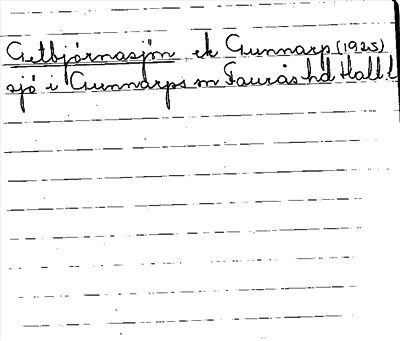 Getbjörnasjön ek Gunnarp (1925)
sjö i Gunnarps sn Faurås hd Hall. l.